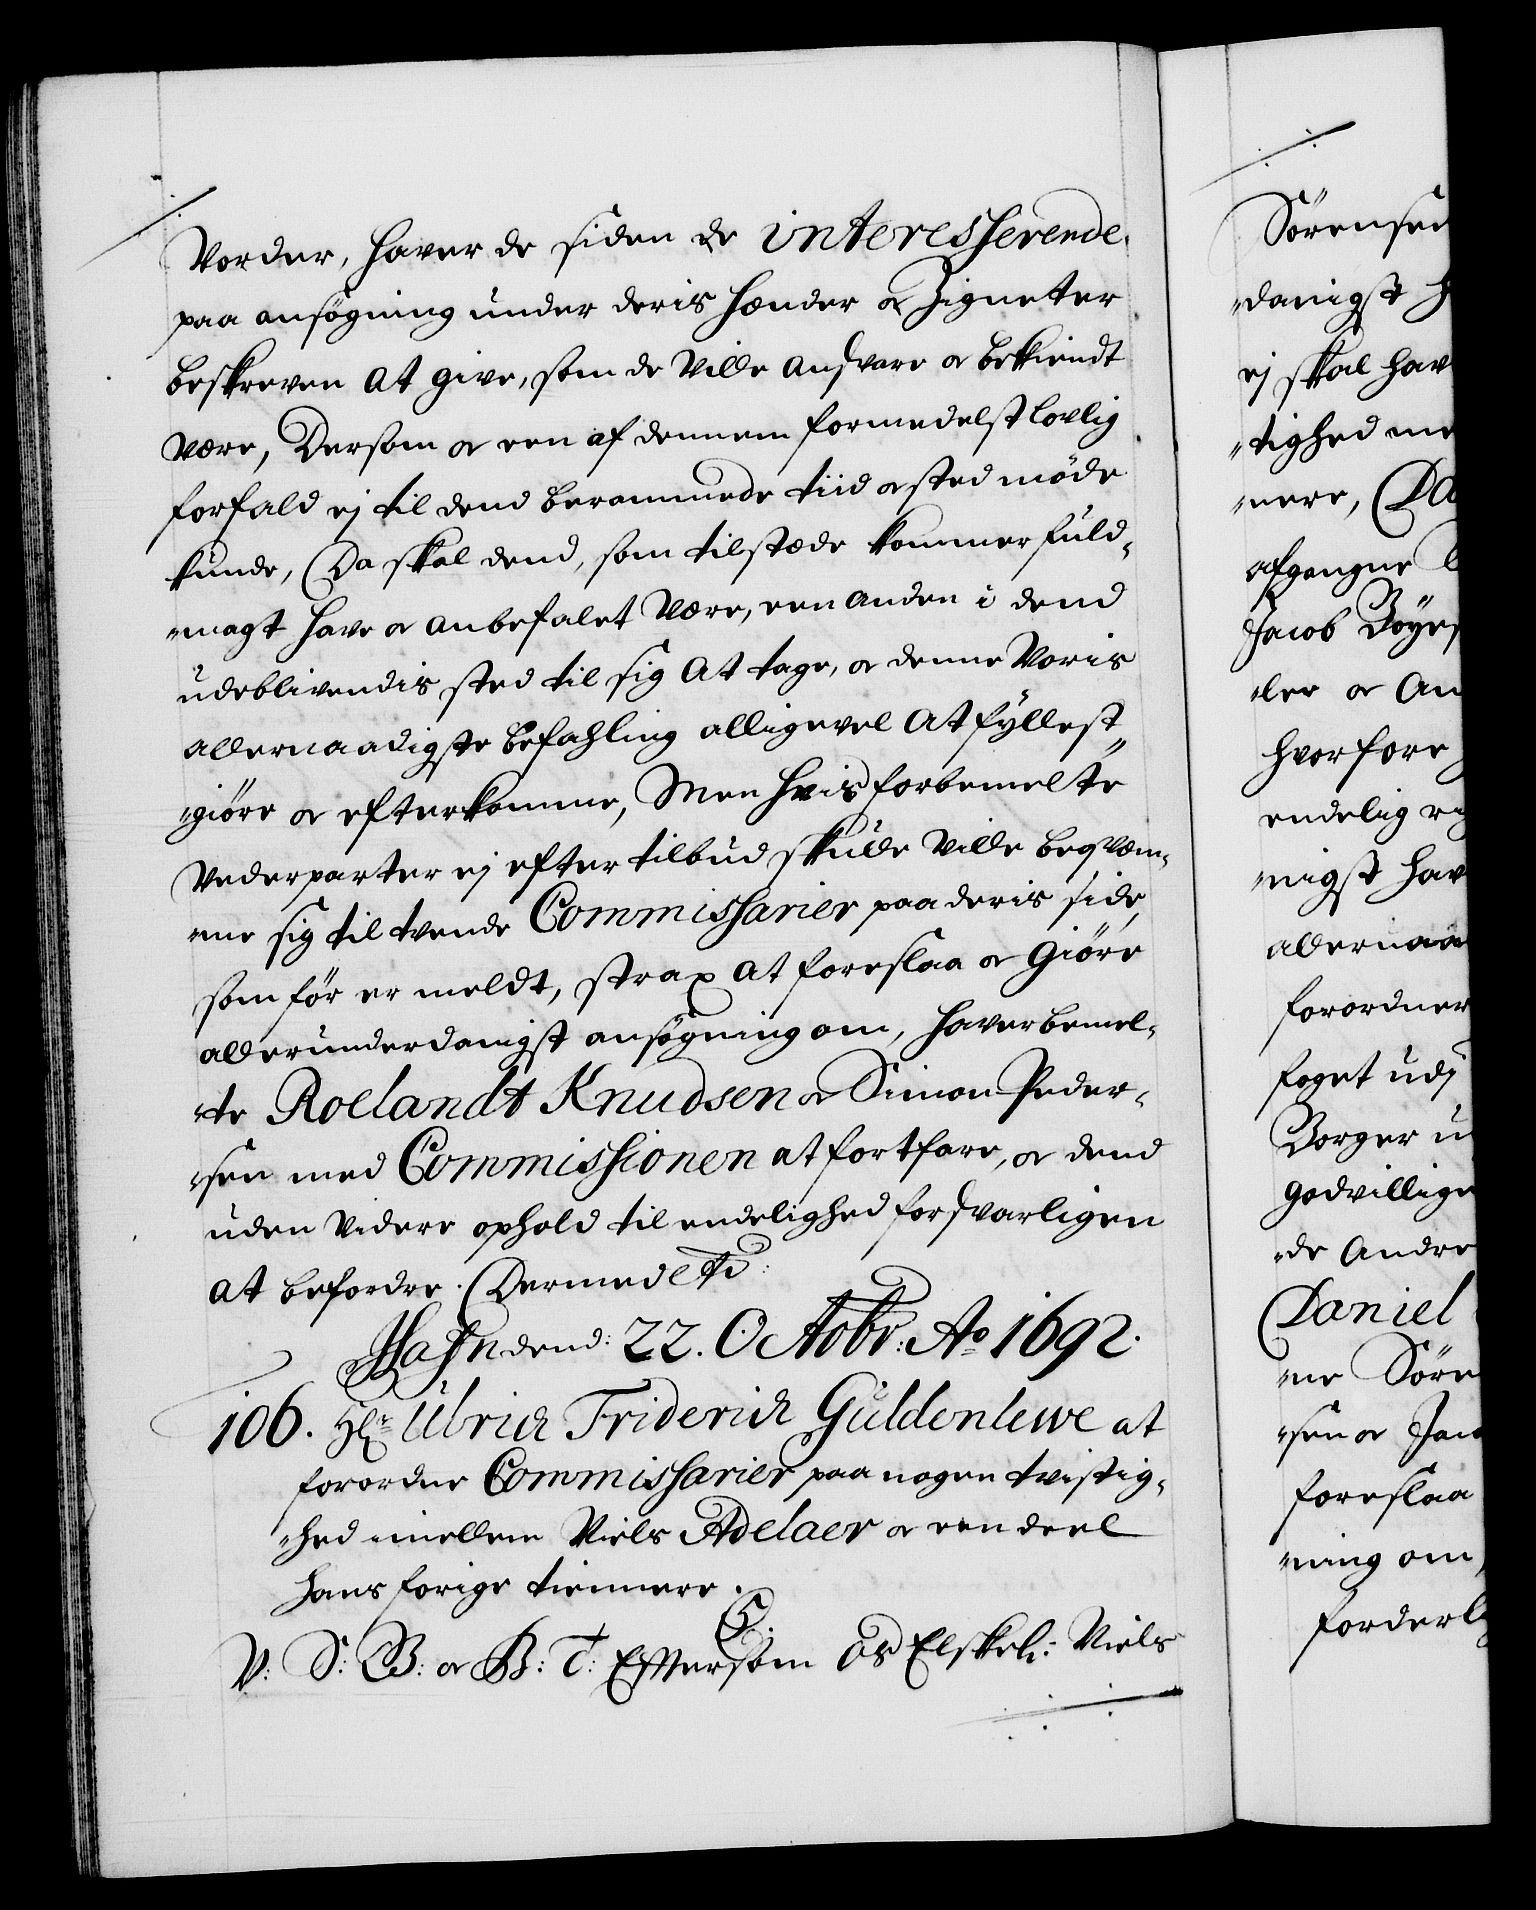 Vorder, haver de siden de interesserende
paa ansøgning under deris hænder og Zigneter
beskreven at give, som de ville ansvare og bekiendt
være, Dersom og een af dennem formedelst lovlig
forfald ej til dend berammede tiid og sted møde
kunde, Da skal dend, som tilstæde kommer fuld-
magt have og anbefalet være, een anden i dend
udeblivendis sted til sig at tage, og denne Voris
allernaadigste befahling alligevel at fyllest-
giøre og efterkomme, Men hvis forbemelte
Vederparter ej efter tilbud skulle ville beqvem-
me sig til tvende Commissarier paa deris side,
som før er meldt, strax at foreslaa og giøre
allerunderdanigst ansøgning om, haver bemel-
te Roelandt Knudsen og Simon Peder-
sen med Commissionen at fortfare, og dend
uden videre ophold til endelighed forsvarligen
at befordre. Dermed etc:
Hafn dend: 22. Octobr: Ao 1692.
106. Hr Ulrich Friderich Guldenlewe at
forordne Commissarier paa nogen tvistig-
hed imellem Niels Adelaer og een deel
hans forige tiennere.
C5.
V: S: G: og B: T: Eftersom os Elskel: Niels
Sörensen
danigst h
ej skal hav
tighed me
nere, Da
afgangne
Jacob Böyes
ler og An
hvorfore
endelig
nigst hav
allernaa
forordner
foget udj
Borger u
godvillige
de andre
Daniel
ne Söre
sen og Jac
foreslaa
ning om,
forderl